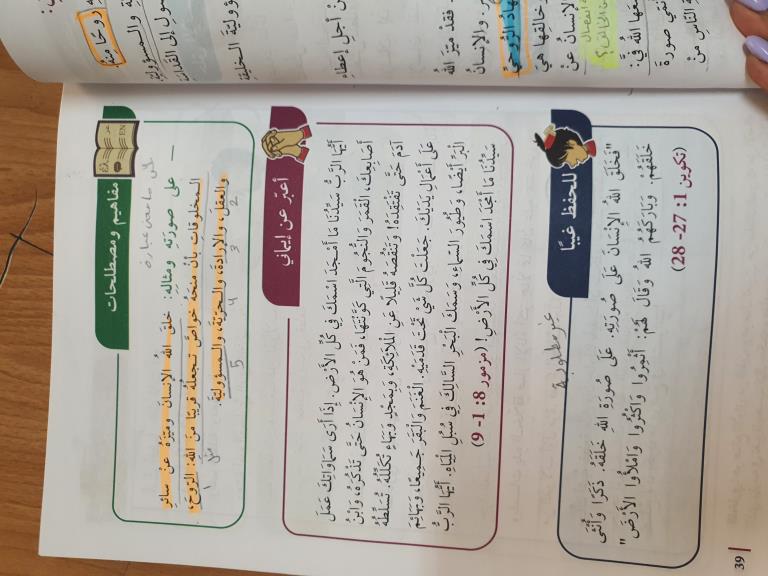 مفاهيم ومصطلحات
— على صورته ومثاله: خلق الله الإنسان وميّزه عن سائرِ
المخلوقات بأن منحهُ خواصّ تجعلهُ قريبًا منَ الله: الرّوحَ،
والعقلَ، والإرادةَ، والحرّيّةَ، والمسؤوليّةَ.
1
2
3
4
5
أعبّر عن إيماني
أَيُّهَا الرَّبُّ سَيِّدُنَا مَا أَمْجَدَ اسْمَكَ فِي كُلِّ الأَرْضِ. إِذَا أَرَى سَمَاوَاتِكَ عَمَلَ
أَصَابِعِكَ، الْقَمَرَ وَالنُّجُومَ الَّتِي كَوَّنْتَهَا، فَمَنْ هُوَ الإِنْسَانُ حَتَّى تَذْكُرَهُ، وَابْنُ
آدَمَ حَتَّى تَفْتَقِدَهُ! وَتَنْقُصُهُ قَلِيلًا عَنِ الْمَلَائِكَةِ، وَبِمَجْدٍ وَبَهَاءٍ تُكَلِّلُهُ. تُسَلِّطُهُ
عَلَى أَعْمَالِ يَدَيْكَ. جَعَلْتَ كُلَّ شَيْءٍ تَحْتَ قَدَمَيْهِ. الْغَنَمَ وَالْبَقَرَ جَمِيعًا، وَبَهَائِمَ
الْبَرِّ أَيْضًا، وَطُيُورَ السَّمَاءِ، وَسَمَكَ الْبَحْرِ السَّالِكَ فِي سُبُلِ الْمِيَاهِ. أَيُّهَا الرَّبُّ
سَيِّدُنَا مَا أَمْجَدَ اسْمَكَ فِي كُلِّ الأَرْضِ! (مزمور 8: 1- 9)
للحفظ غيبًا
غير مطلوبة
"فَخَلَقَ اللهُ الإِنْسَانَ عَلَى صُورَتِهِ. عَلَى صُورَةِ اللهِ خَلَقَهُ. ذَكَرًا وَأُنْثَى
خَلَقَهُمْ. وَبَارَكَهُمُ اللهُ وَقَالَ لَهُمْ: أَثْمِرُوا وَاكْثُرُوا وَامْلأُوا الأَرْضَ"
(تكوين 1: 27- 28)
39